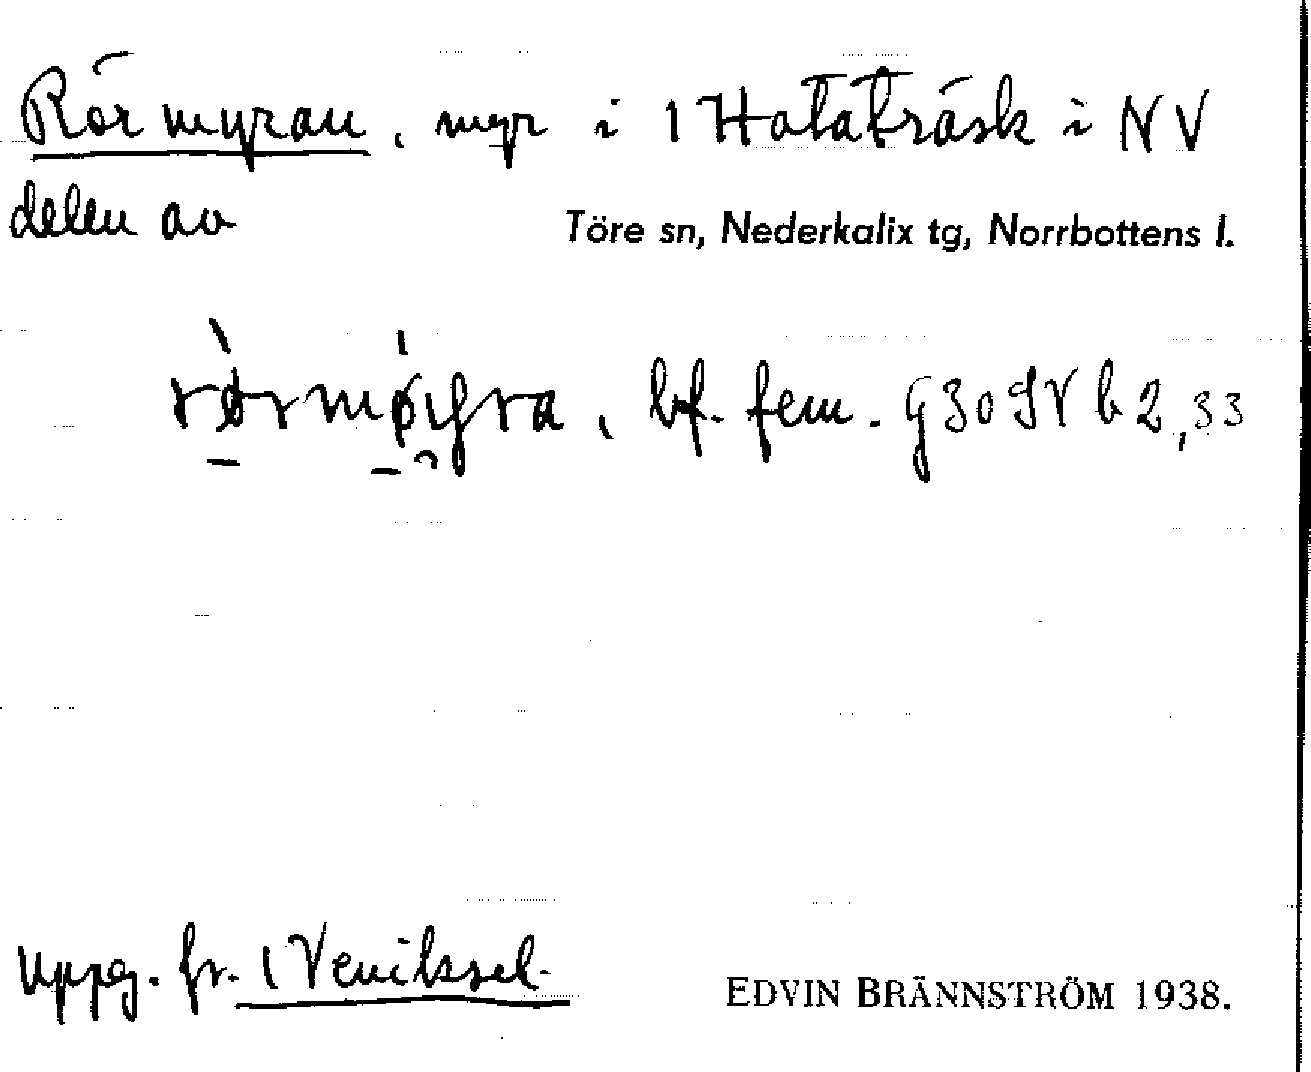 Rörmyran, myr i 1 Hataträsk i NV
delen av Töre sn, Nederkalix tg, Norrbottens l.
bf. fem. G30 SV b 2,33
Uppg. fr. 1 Vänikssel.
EDVIN BRÄNNSTRÖM 1938.